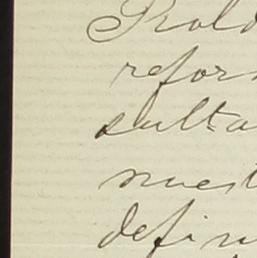 Prold
refor
sulta
nuest
defin